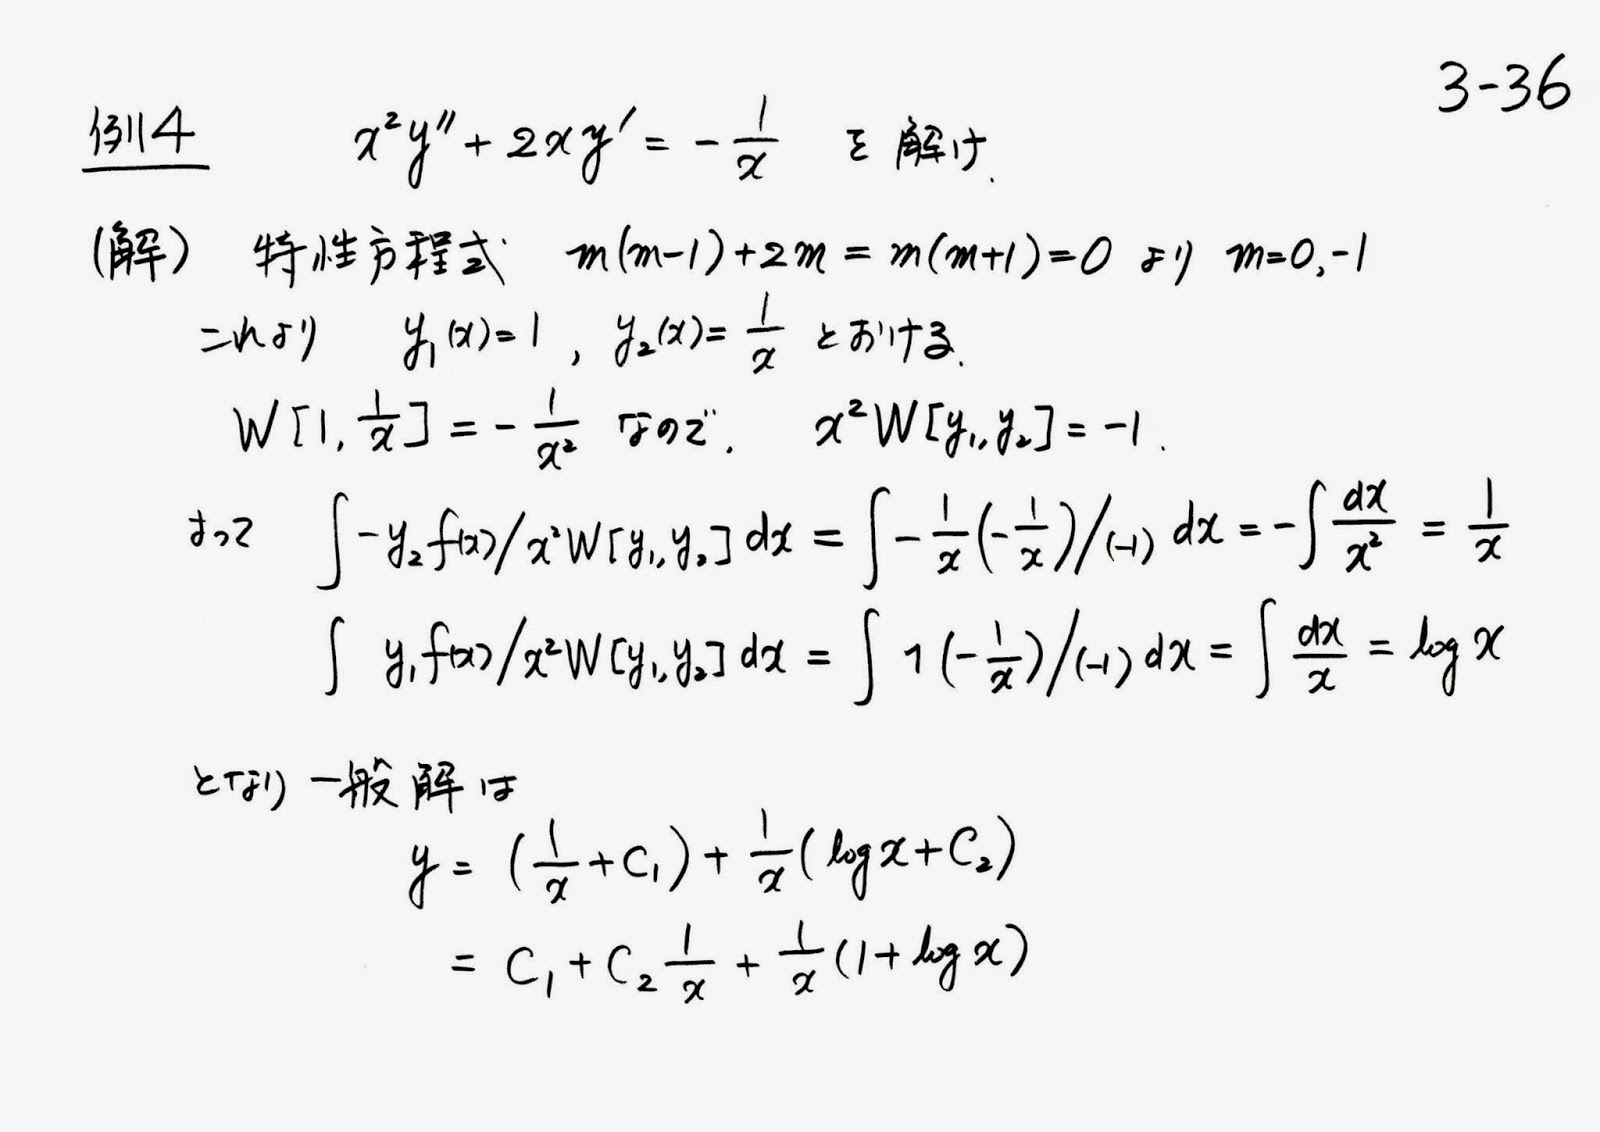 3-36
例4 x²y″ + 2xy′ = -1/x を解け.
(解) 特性方程式 m(m-1)+2m = m(m+1)=0 より m=0,-1
これより y₁(x)=1, y₂(x)=1/x とおける.
W[1, 1/x] = -1/x² なので, x²W[y₁,y₂] = -1.
よって ∫-y₂f(x)/x²W[y₁,y₂]dx = ∫-1/x(-1/x)/(-1) dx = -∫dx/x² = 1/x
∫ y₁f(x)/x²W[y₁,y₂]dx = ∫1(-1/x)/(-1)dx = ∫dx/x = log x
となり一般解は
y = (1/x + C₁) + 1/x(log x + C₂)
= C₁ + C₂ 1/x + 1/x(1 + log x)